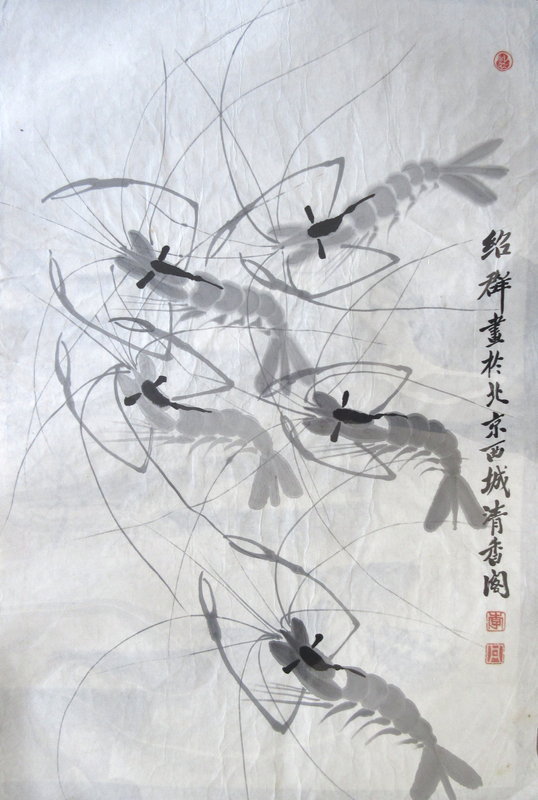 绍群畫於北京西城清香阁